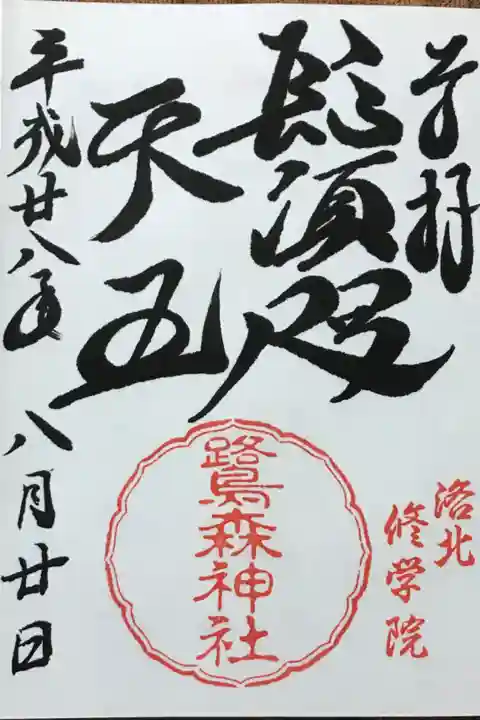 奉拝
鬚咫
天王
平成廿八年八月廿日
洛北
修学院
鷺森神社